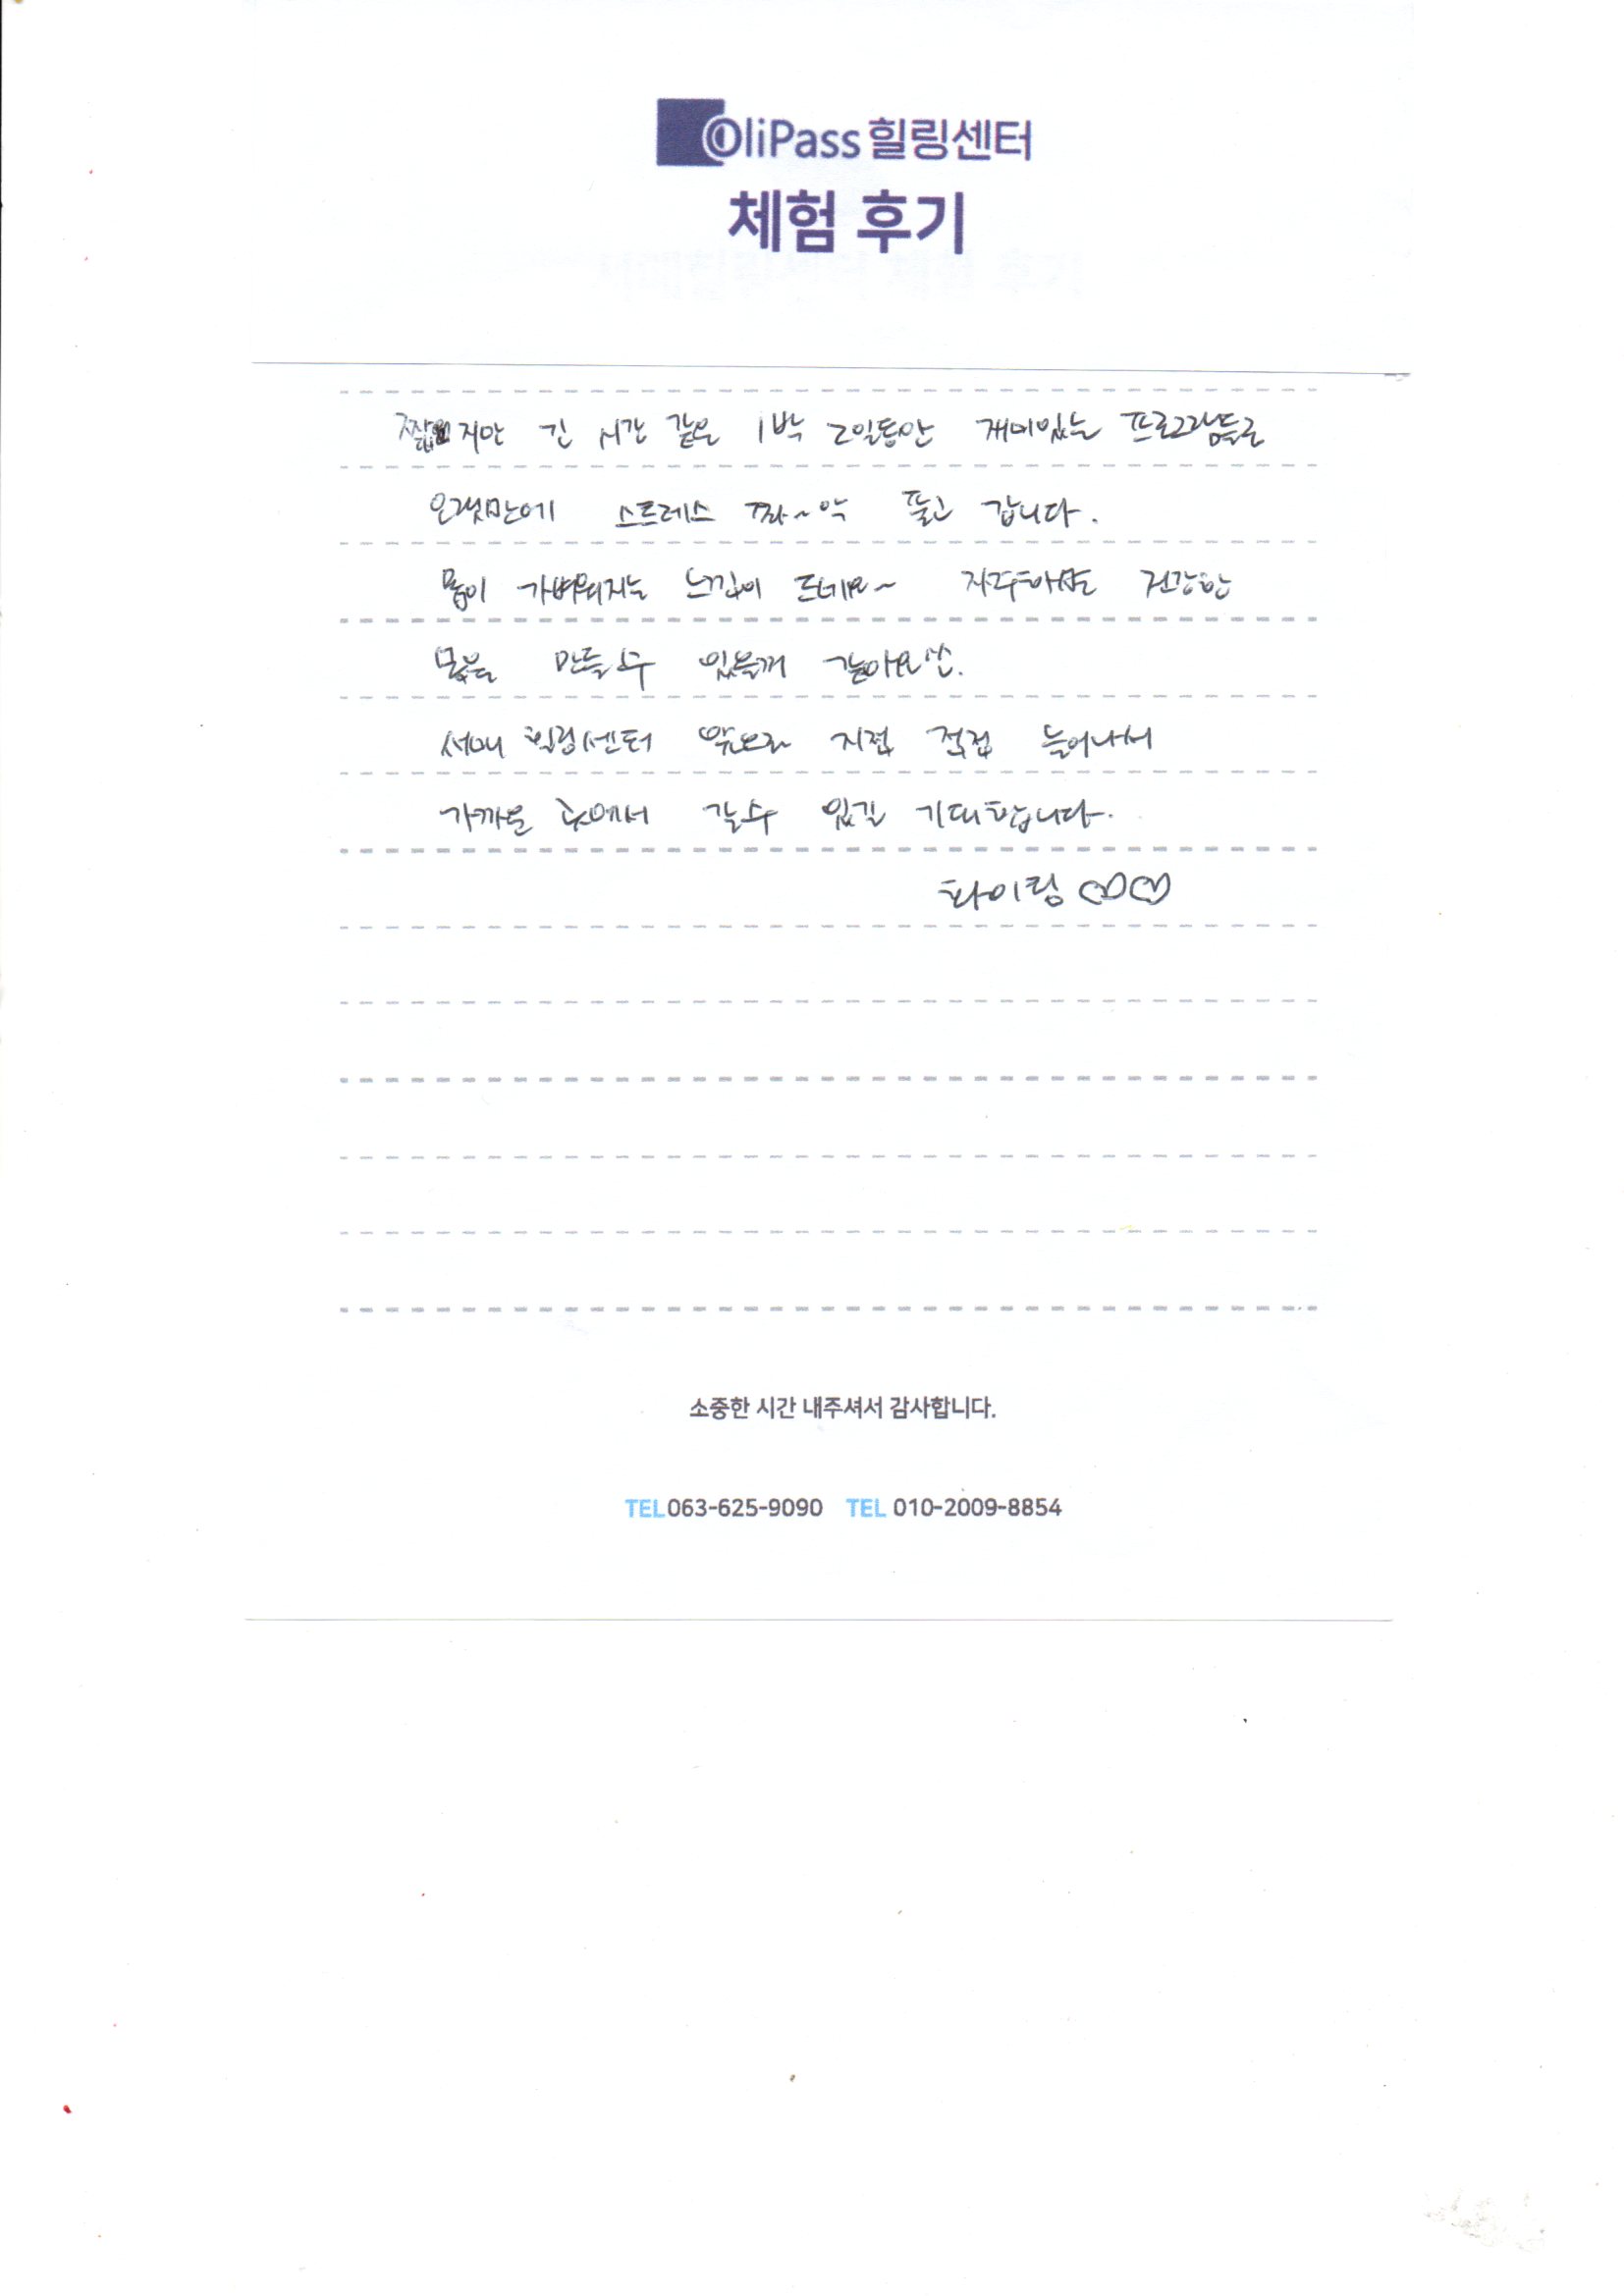 OliPass 힐링센터
체험 후기
짧지만 긴 시간 같은 1박 2일동안 재미있는 프로그램들로
오랫만에 스트레스 쫘~악 풀고 갑니다.
몸이 가벼워지는 느낌이 드네요~ 자주하면 건강한
몸을 만들수 있을꺼 같아요^^.
힐링센터 앞으로 지점 점점 늘어나서
가까운 곳에서 갈수 있길 기대합니다.
화이팅 ♡♡
소중한 시간 내주셔서 감사합니다.
TEL 063-625-9090 TEL 010-2009-8854